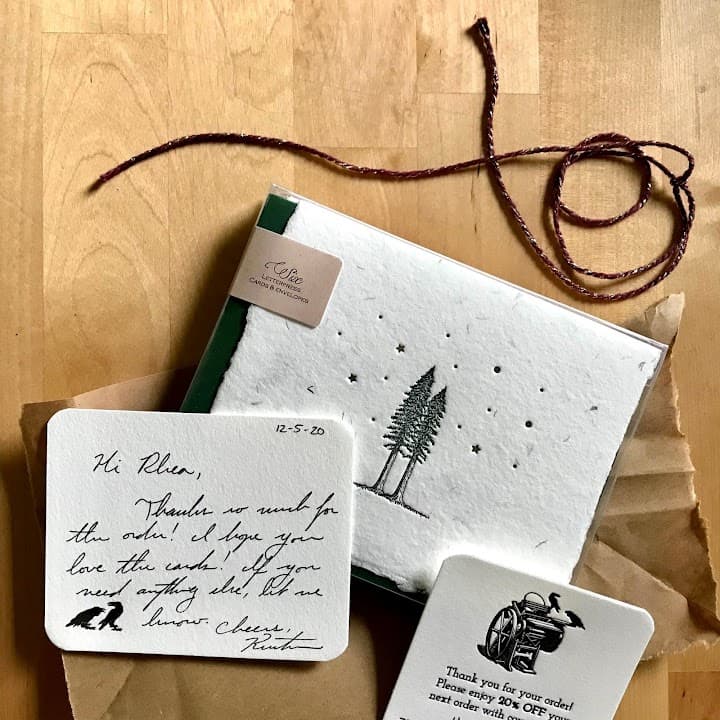 Six
LETTERPRESS
CARDS & ENVELOPES
12-5-20
Hi Rhea,
Thanks so much for
the order! I hope you
love the cards! If you
need anything else, let me
know. Cheers,
Thank you for your order!
Please enjoy 20% OFF your
next order with